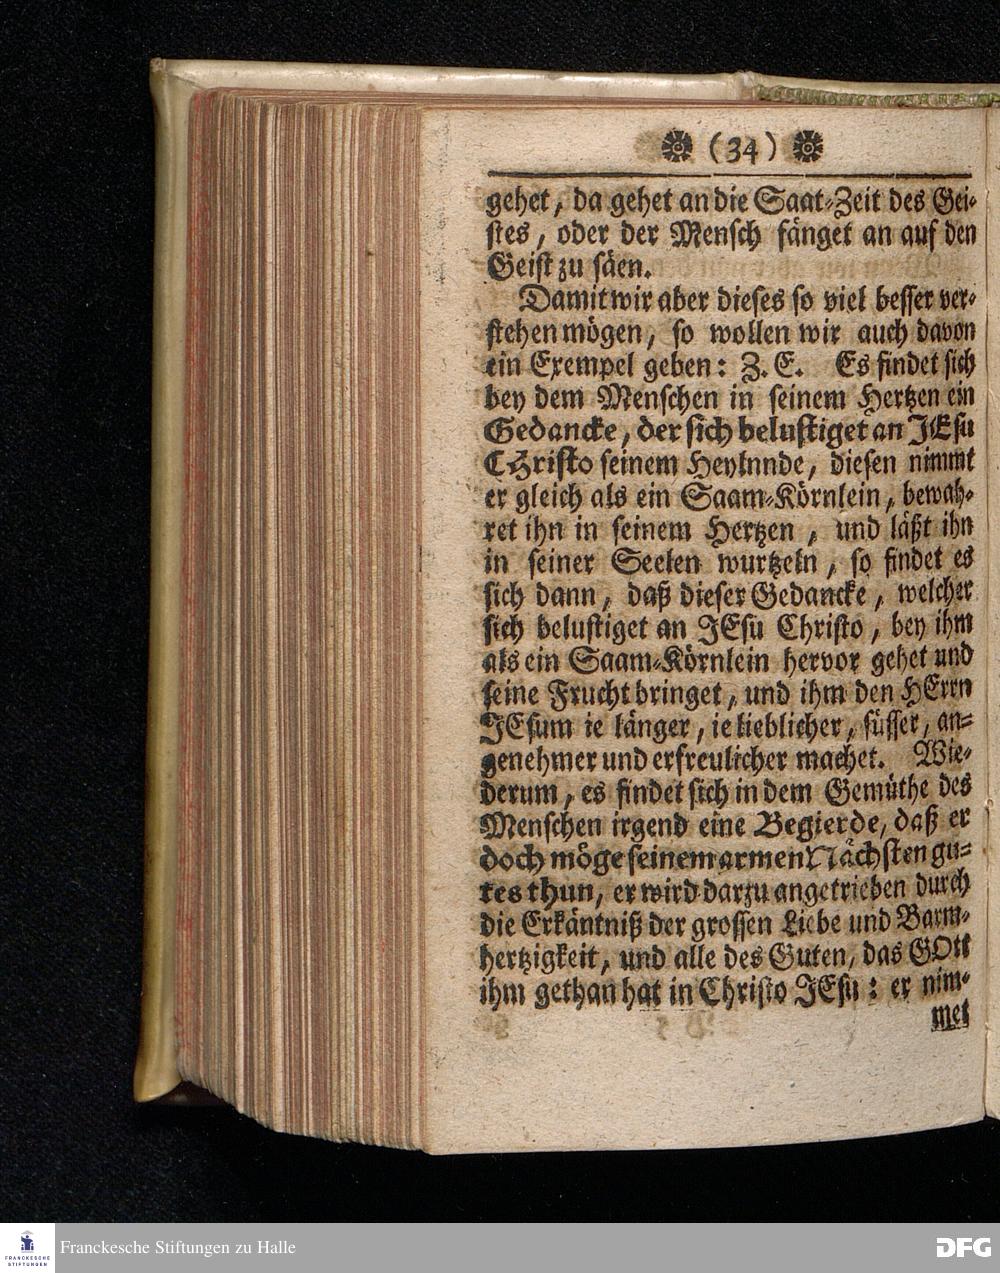 (34)
gehet, da gehet an die Saat-Zeit des Gei-
stes, oder der Mensch fänget an auf den
Geist zu säen.
Damit wir aber dieses so viel besser ver-
stehen mögen, so wollen wir auch davon
ein Exempel geben: Z. E. Es findet sich
bey dem Menschen in seinem Hertzen ein
Gedancke, der sich belustiget an JEsu
CHristo seinem Heylande, diesen nimmt
er gleich als ein Saam-Körnlein, bewah-
ret ihn in seinem Hertzen, und läßt ihn
in seiner Seelen wurtzeln, so findet es
sich dann, daß dieser Gedancke, welcher
sich belustiget an JEsu Christo, bey ihm
als ein Saam-Körnlein hervor gehet und
seine Frucht bringet, und ihm den HErrn
JEsum ie länger, ie lieblicher, süsser, an-
genehmer und erfreulicher machet. Wie-
derum, es findet sich in dem Gemüthe des
Menschen irgend eine Begierde, daß er
doch möge seinem armen Nächsten gu-
tes thun, er wird darzu angetrieben durch
die Erkäntniß der grossen Liebe und Barm-
hertzigkeit, und alle des Guten, das GOtt
ihm gethan hat in Christo JEsu: er nim-
met
FRANCKESCHE
STIFTUNGEN
Franckesche Stiftungen zu Halle
DFG